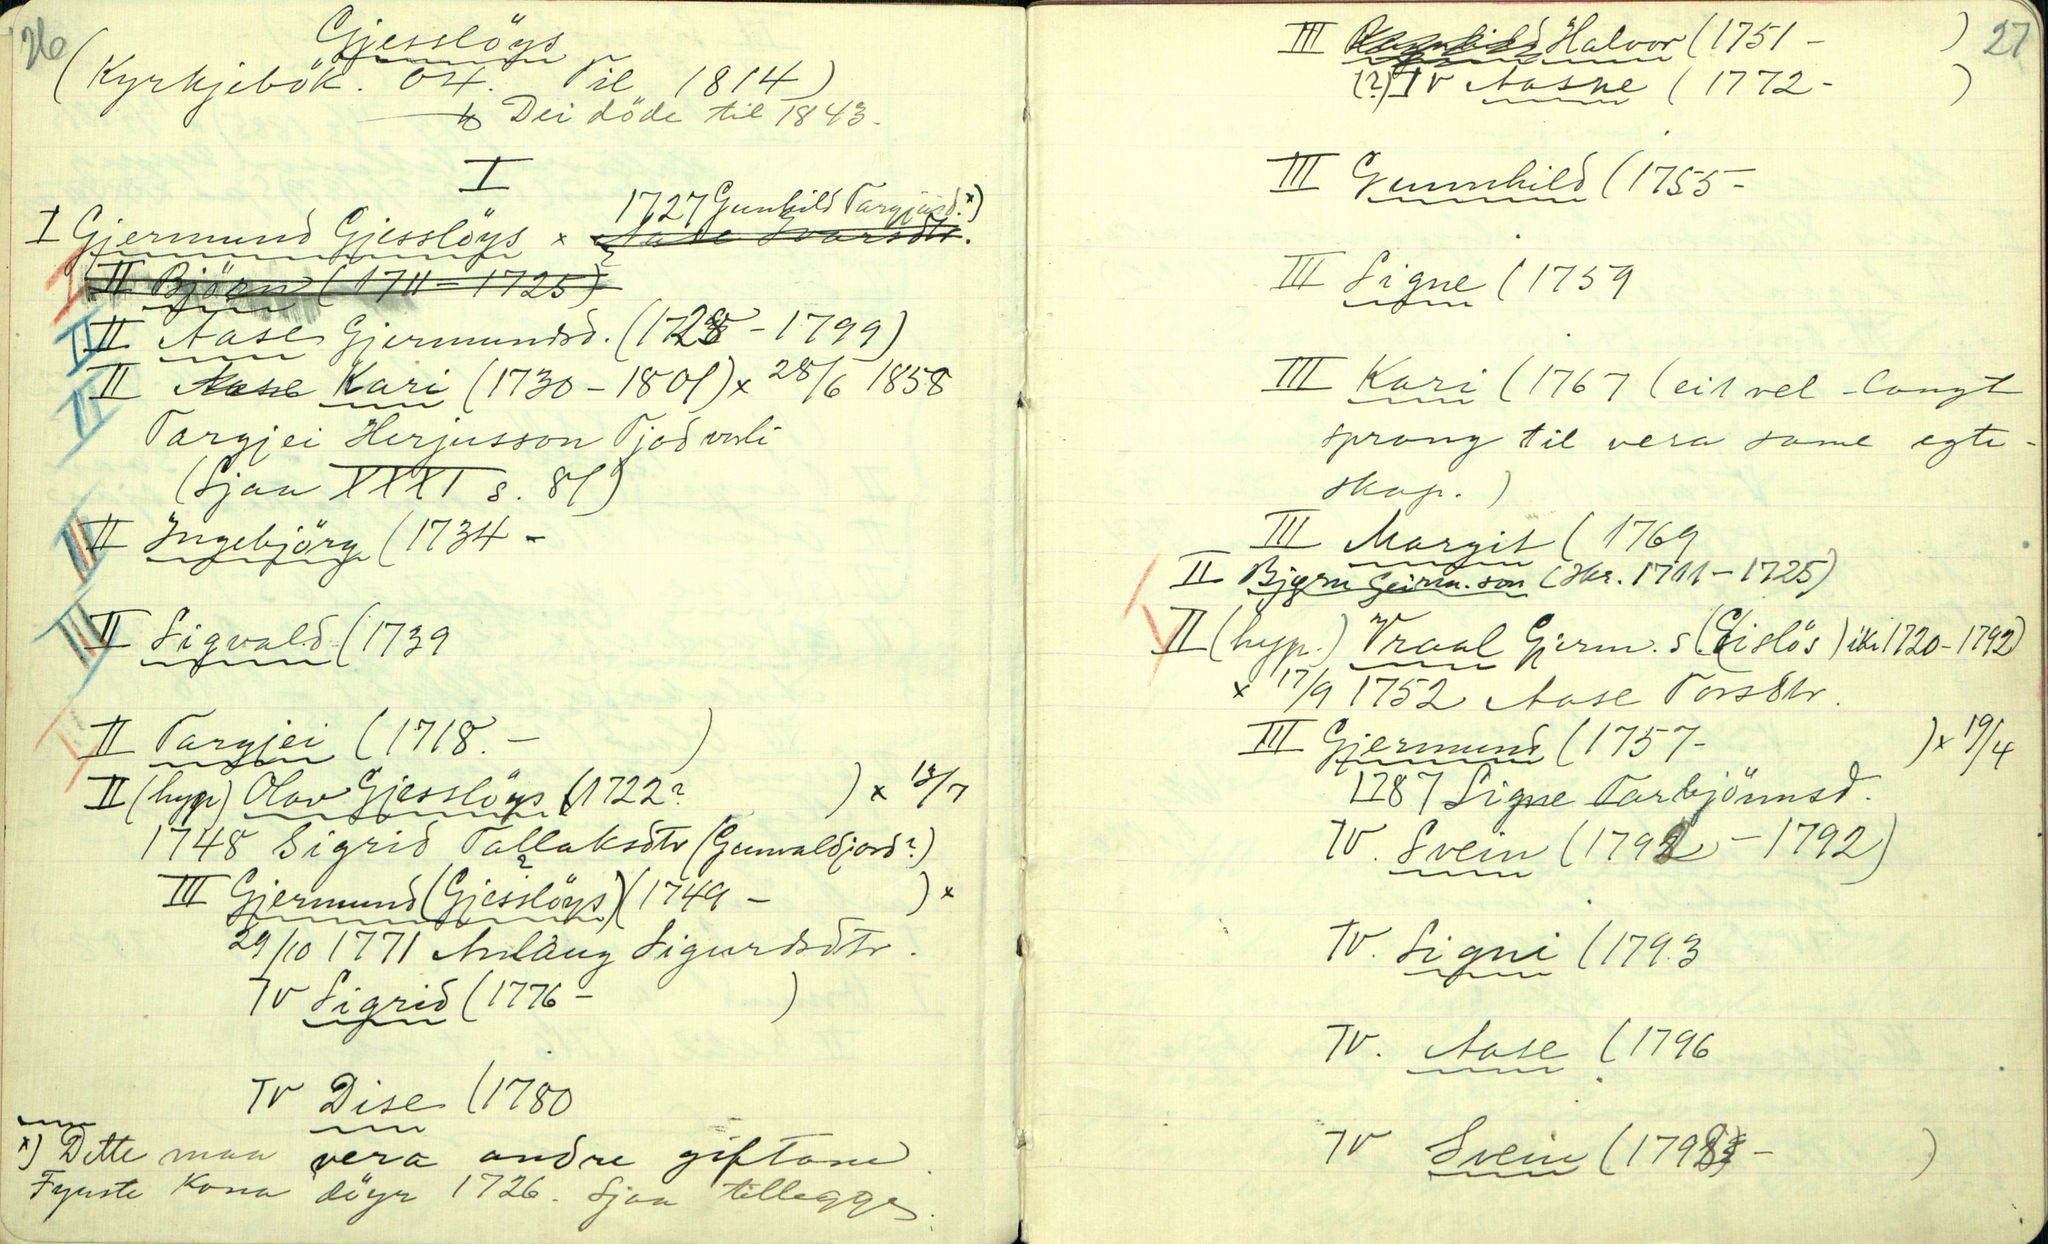 26
Gjesslöys
(Kyrkjebök. 04. Til 1814)
Dei döde til 1843.
I
1727 Gunhild Targjusd.x)
I Gjermund Gjesslöys x Aase Ivarsdtr.
I II Björn (1711 - 1725)
II II Aase Gjermundsd. (1728 - 1799)
III II Aase Kari (1730 - 1801) x 28/6 1858
Targjei Herjusson Tjodvarli
(Sjaa XXXI s. 81)
II Ingebjörg (1734 -
II Sigvald (1739
II Targjei (1718. - )
II (hyp) Olav Gjesslöys (1722? ) x 13/7
1748 Sigrid Tallaksdtr (Gunvaldjord?)
III Gjermund (Gjesslöys) (1749 - ) x
29/10 1771 Anlaug Sigurdsdtr.
IV Sigrid (1776 - )
IV Dise (1780
x) Dette maa vera andre giftone.
Fyrste Kona döyr 1726. Sjaa tillegge.
27
III Ragnhild Halvor (1751 - )
(?) IV Aasne (1772 - )
III Gunnhild (1755 -
III Signe (1759
III Kari (1767 (eit vel langt
sprang til vera same egte-
skap.)
III Margit (1769
II Bjørn Geirm.son (Skr. 1711 - 1725)
II (hyp.) Vraal Gjerm. s (Gislös) ikr 1720 - 1792)
x 17/9 1752 Aase Torsdtr.
III Gjermund (1757 - ) x 19/4
1787 Signe Tarbjönnsd.
IV. Svein (1792 - 1792)
IV. Signi (1793
IV. Aase (1796
IV Svein (1798 - )